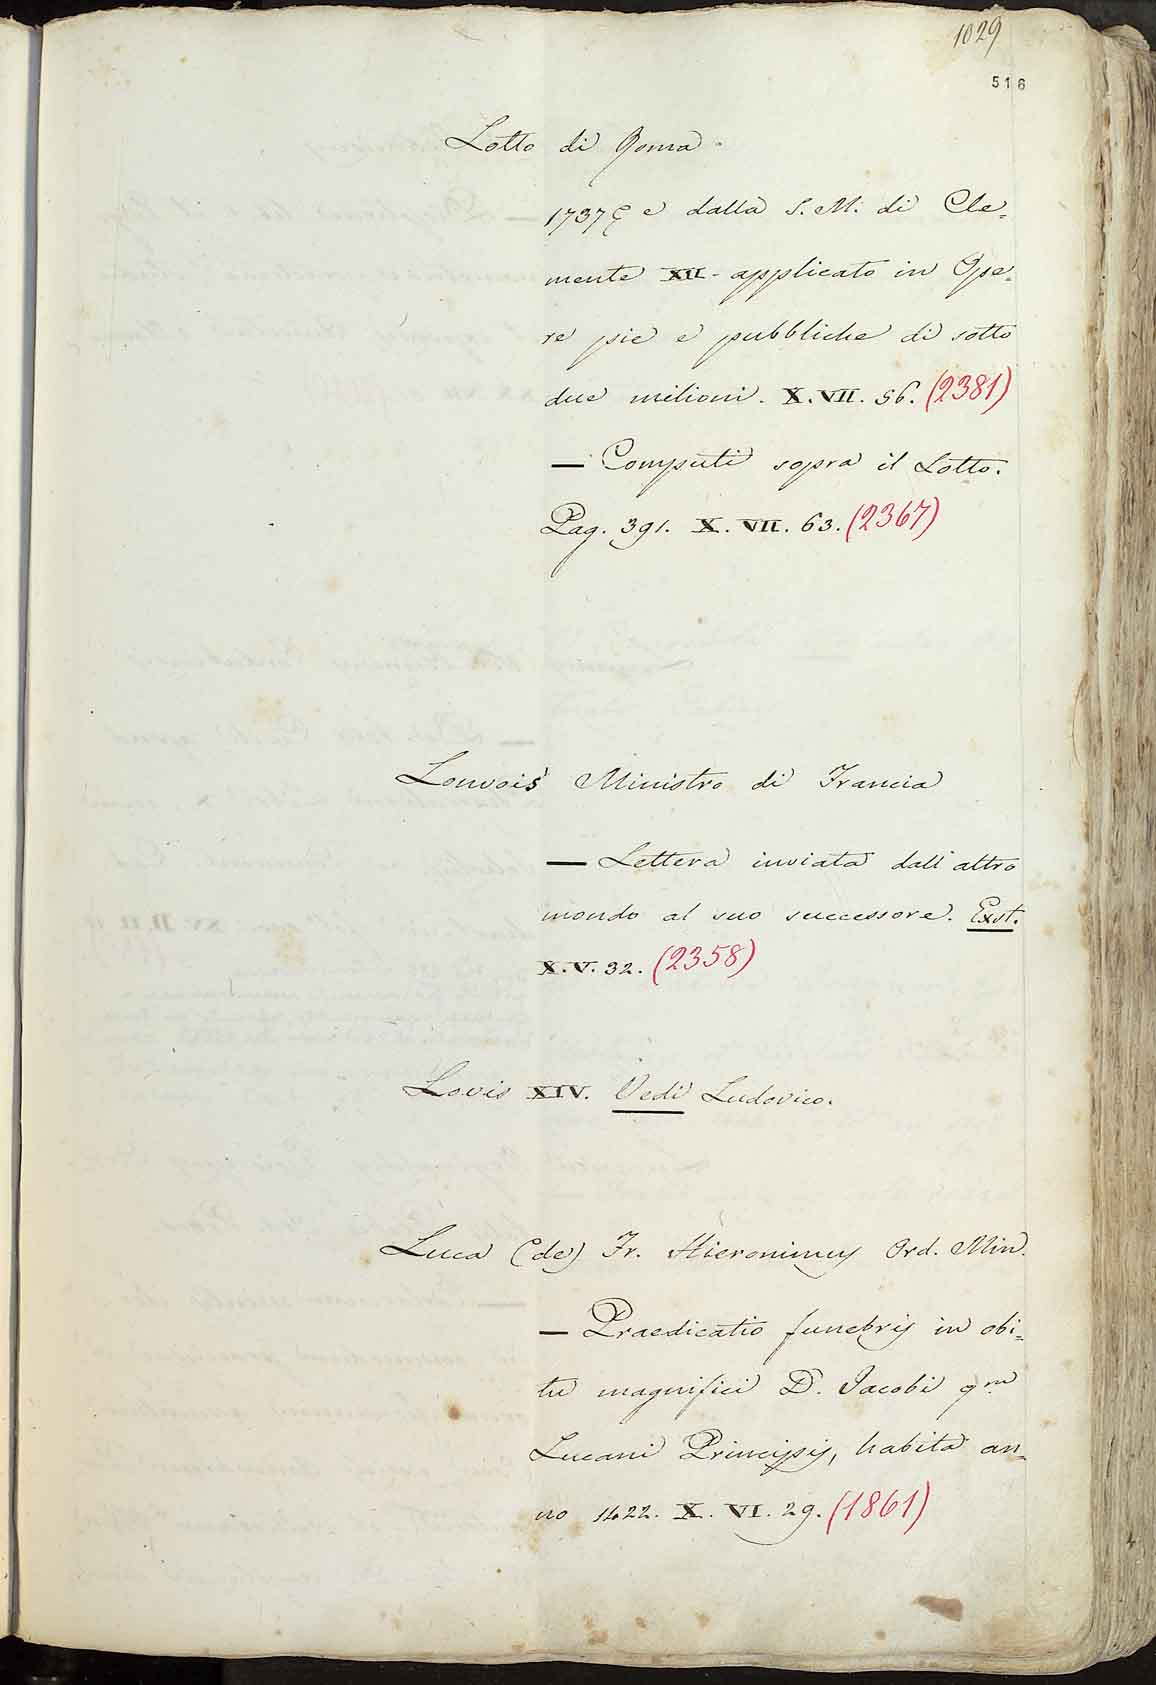 1029
516
Lotto di Roma.
1737 e dalla S. M. di Cle=
mente XII. applicato in Ope=
re pie e pubbliche di sotto
due milioni. X. VII. 56. (2381)
— Computi sopra il Lotto.
Pag. 391. X. VII. 63. (2367)
Louvois Ministro di Francia
— Lettera inviata dall'altro
mondo al suo successore. Exst.
X. V. 32. (2358)
Lovis XIV. Vedi Ludovico.
Luca (de) Fr. Hieronimus Ord. Min.
— Praedicatio funebris in obi=
tu magnifici D. Jacobi qm
Lucani Principis, habita an=
no 1422. X. VI. 29. (1861)